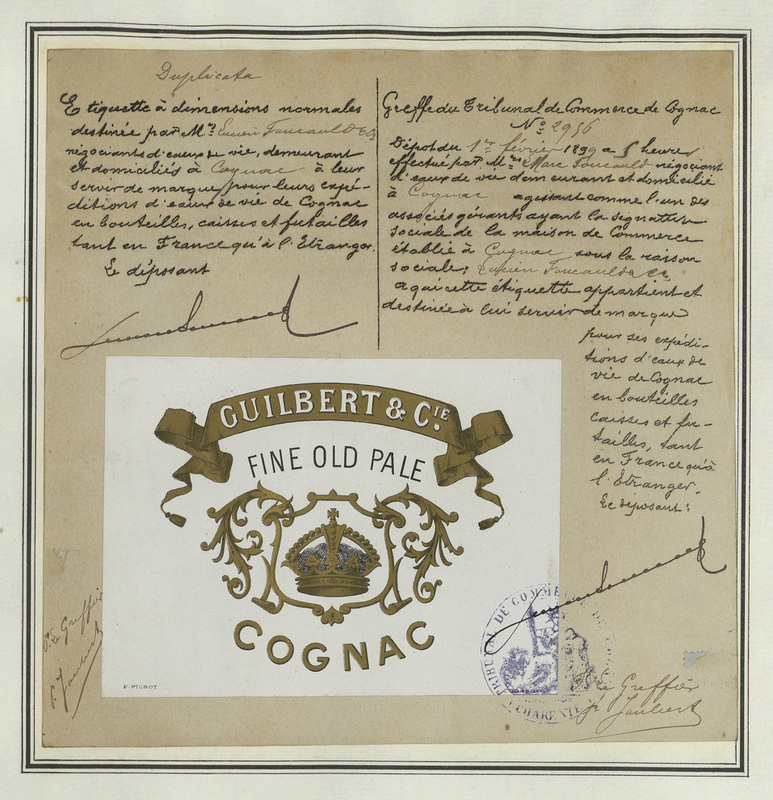 Duplicata
Etiquette à dimensions normales
destinée par Mrs Lucien Foucauld & Co
négociants d'eaux de vie, demeurant
et domiciliés à Cognac à leur
servir de marque pour leurs expé-
ditions d'eaux de vie de Cognac
en bouteilles, caisses et futailles
tant en France qu'à l'Etranger.
Le déposant
Greffe du Tribunal de Commerce de Cognac
No 2956
Dépôt du 1er février 1899 a 5 heures
effectué par Mr Marc Foucauld négociant
d'eaux de vie demeurant et domicilié
à Cognac agissant comme l'un des
associés gérants ayant la signature
sociale de la maison de Commerce
établie à Cognac sous la raison
sociale: Lucien Foucauld & Co
a qui cette étiquette appartient et
destinée à lui servir de marque
pour ses expédi-
tions d'eaux de
vie de Cognac
en bouteilles
caisses et fu-
tailles, tant
en France qu'à
l'Etranger.
Le déposant:
GUILBERT & CIE.
FINE OLD PALE
COGNAC
TRIBUNAL DE COMMERCE
CHARENTE
P. Le Greffier
P. Joubert
Le Greffier
P. Joubert